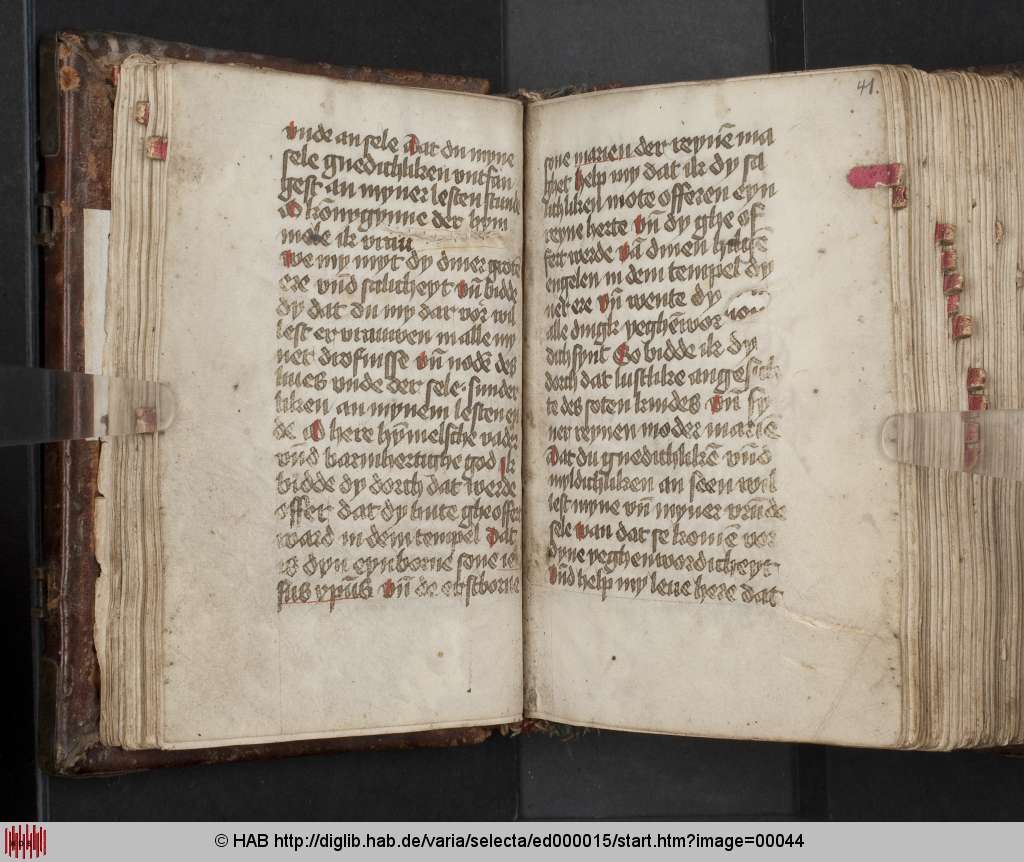 vnde an sele Dat du myne
sele gnedichliken vntfan
gest an myner lesten stunde
O konnygynne der hym
mele ik vrau
we my myt dy diner grote
ere vnd salicheyt Vn̄ bidde
dy dat du my dat vor wil
lest ervrauwen in alle my
ner drofnisse Vn̄ nodē des
liues vnde der sele sunder
liken an mynem lesten en
de O here hȳmelsche vader
vnd barmhertighe god Ik
bidde dy dorch dat werde
offer dat dy hute gheoffer
ward in dem tempel Dat
is dyn eynborne sone ie
sus xp̄us Vn̄ de erstborne
41.
sone marien der reynē ma
ghet help my dat ik dy sa
lichliken mote offeren eyn
reyne herte Vn̄ dy ghe of
fert werde Van dinen hilligē
engelen in dem tempel dy
ner ere Vn̄ wente dy
alle dingk yeghēwor
dich synt So bidde ik dy
dorch dat lustlike angesich
te des soten kindes Vn̄ sy
ner reynen moder mariē
Dat du gnedichlikē vnd
myldichliken an seen wil
lest myne vn̄ myner vrūde
sele Van dat se komē vor
dyne yeghenwordicheyt
Vnd help my leue here dat
© HAB http://diglib.hab.de/varia/selecta/ed000015/start.htm?image=00044